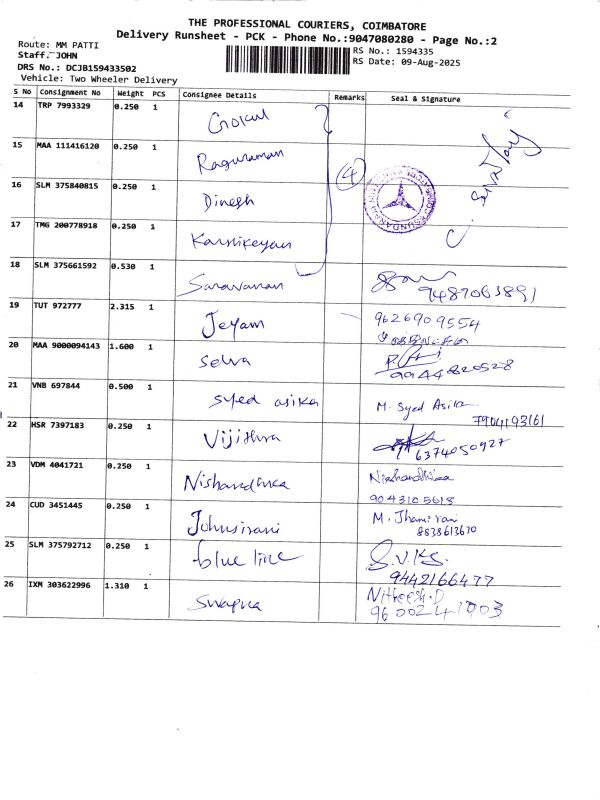 THE PROFESSIONAL COURIERS, COIMBATORE
Delivery Runsheet - PCK - Phone No.:9047080280 - Page No.:2
Route: MM PATTI
Staff: JOHN
DRS No.: DCJB159433502
Vehicle: Two Wheeler Delivery
RS No.: 1594335
RS Date: 09-Aug-2025
S No Consignment No Weight PCS Consignee Details Remarks Seal & Signature
14 TRP 7993329 0.250 1 Gokul
15 MAA 111416120 0.250 1 Raguraman
16 SLM 375840815 0.250 1 Dinesh
4
17 TMG 200778918 0.250 1 Karthikeyan
18 SLM 375661592 0.530 1 Saravanan
9487063891
19 TUT 972777 2.315 1 Jeyam 9626909554
20 MAA 9000094143 1.600 1 Selva
9944820528
21 VNB 697844 0.500 1 Syed asika M. Syed Asika
7904193161
22 HSR 7397183 0.250 1 Vijithra
6374050927
23 VDM 4041721 0.250 1 Nishandhika Nishandhikaa
9043105618
24 CUD 3451445 0.250 1 Johnsirani M. Jhansi rani
8838613670
25 SLM 375792712 0.250 1 blue line S.V.KS.
9442166477
26 IXM 303622996 1.310 1 Swapna Nitheesh.D
9600241003